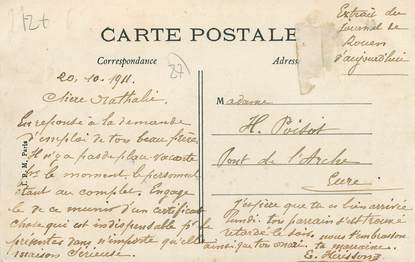 12+
Extrait du
Journal de
Rouen
d'aujourd'hui
CARTE POSTALE
Correspondance
Adresse
20.10.1911.
Chère Nathalie.
En reponse à la demande
d'emploi de ton beau frère.
Il n'y a pas de place vacante
le moment, le personnel
étant au complet. Engage
le de ce munir d'un certificat
chose qui est indispensable pr
présenter dans n'importe qu'elle
maison Sérieuse.
Madame
H. Poibot
Pont de l'Arche
Eure
J'espère que tu es bien arrivée
lundi. ton parrain s'est trouvé
retardé le soir. nous t'embrassons
ainsi que ton mari. ta marraine.
E. Hérisson
Paris